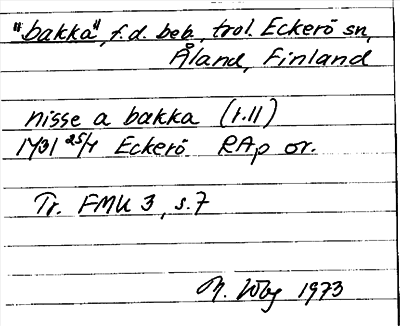 "bakka", f.d. beb., trol. Eckerö sn,
Åland, Finland
nisse a bakka (r.11)
1431 25/4 Eckerö RAp or.
Tr. FMU 3, s.7
1973